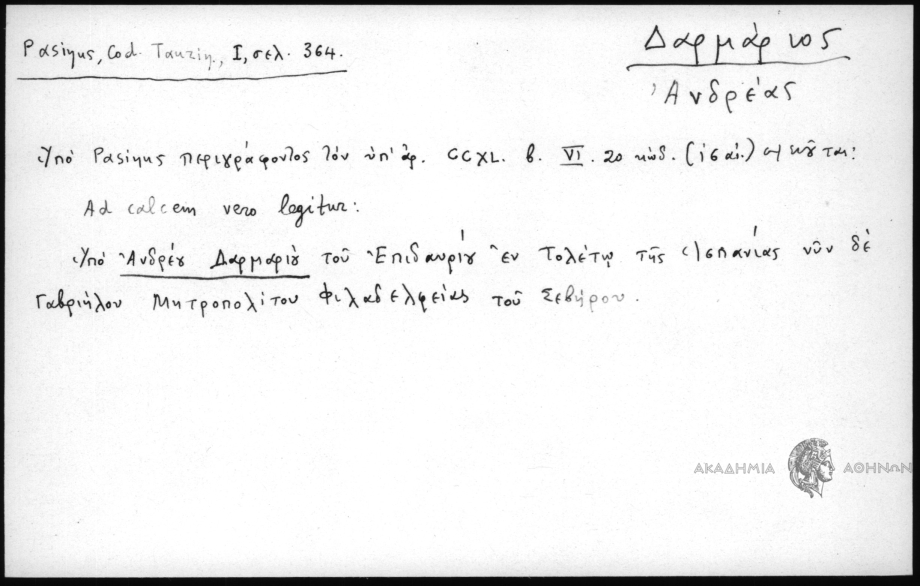 Pasinus, Cod. Taurin., I, σελ. 364.
Δαρμάριος
Ἀνδρέας
Ὑπό Pasinus περιγράφοντος τόν ὑπ' ἀρ. CCXL. b. VI. 20 κώδ. (ις αἰ.)
Ad calcem vero legitur:
Ὑπό Ἀνδρέου Δαρμαρίου τοῦ Ἐπιδαυρίου ἐν Τολέτῳ τῆς Ἱσπανίας νῦν δέ
Γαβριήλου Μητροπολίτου Φιλαδελφείας τοῦ Σεβήρου.
ΑΚΑΔΗΜΙΑ ΑΘΗΝΩΝ